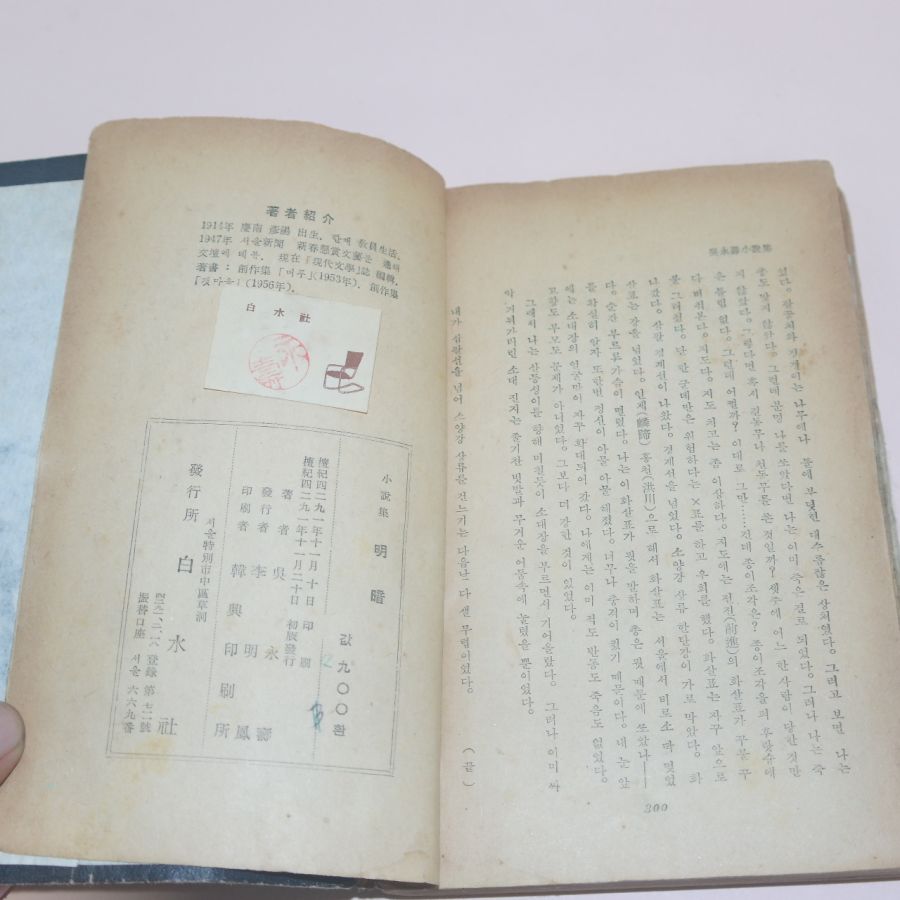 著者紹介
1914年 慶南 彦陽 出生. 한때 敎員生活.
1947年 서울新聞 新春懸賞文藝를 通해
文壇에 데뷰. 現在「現代文學」誌 編輯.
著書 : 創作集「머루」(1953年). 創作集
「갯마을」(1956年).
白水社
小說集 明暗 값 九〇〇환
檀紀四二九一年十一月 十日 印刷
檀紀四二九一年十一月二十日 初版發行
著者 吳永壽
發行者 李明鳳
印刷者 韓興印刷所
서울特別市中區草洞
發行所 白水社
登錄 第七二號
振替口座 서울 六六九番
吳永壽小說集
있다. 팔꿈치와 정갱이는 나무에나 돌에 부딪친 대수롭잖은 상처였다. 그리고 보면 나는
총도 맞지 않았다. 그런데 분명 나를 쏘았다면 나는 이미 죽은 걸로 되었다. 그러나 나는 죽
지 않았다. 그렇다면 혹시 길동무나 천동무를 쏜 것일까? 셋중에 어느 한 사람이 당한 것만
은 틀림 없다. 그런데 어쩔까? 이대로 그만……건데 종이조각은? 종이조각을 펴 후랏슈에
다 비쳐본다. 지도다. 지도 치고는 좀 이상하다. 지도에는 전진(前進)의 화살표가 꾸불 꾸
불 그려졌다. 단 한 군데만은 위험하다는 ×표를 하고 우회를 했다. 화살표는 자꾸 앞으로
나갔다. 삼팔 경계선이 나왔다. 경계선을 넘었다. 소양강 상류 한탄강이 가로 막았다. 화
살표는 강을 넘었다. 인제(麟蹄) 홍천(洪川)으로 해서 화살표는 서울에서 비로소 딱 멎었
다. 순간 부르르 가슴이 떨렸다. 나는 이 화살표가 뭣을 말하며 총은 뭣 때문에 쏘았나——
를 확실히 알자 또한번 정신이 아물 아물 해졌다. 너무나 충격이 컸기 때문이다. 내 눈 앞
에는 소대장의 얼굴만이 자꾸 확대되어 갔다. 나에게는 이미 적도 반동도 죽음도 없었다.
고향도 부모도 문제가 아니었다. 그보다 더 강한 것이 있었다.
그래서 나는 산등성이를 향해 미친듯이 소대장을 부르면서 기어올랐다. 그러나 이미 싸
악 거둬가버린 소대 진지는 줄기찬 빗발과 무거운 어둠속에 눌렸을 뿐이었다.
내가 삼팔선을 넘어 소양강 상류를 건느기는 다음날 다 샐 무렵이었다.
(끝)
300